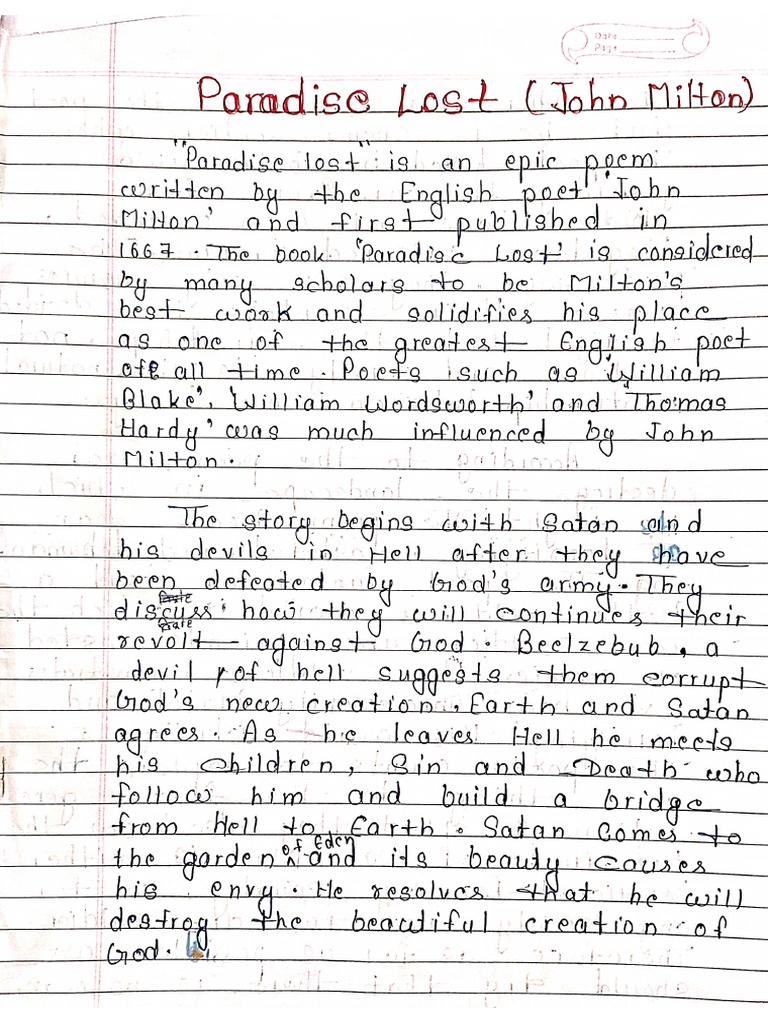 Date
Page
Paradise Lost (John Milton)
"Paradise lost" is an epic poem
written by the English poet 'John
Milton' and first published in
1667. The book 'Paradise Lost' is considered
by many scholars to be Milton's
best work and solidifies his place
as one of the greatest English poet
off all time. Poets such as 'William
Blake', 'William Wordsworth' and 'Thomas
Hardy' was much influenced by John
Milton.
The story begins with Satan and
his devils in Hell after they have
been defeated by God's army. They
discuss how they will continues their
revolt against God. Beelzebub, a
devil of hell suggests them corrupt
God's new creation, Earth and Satan
agrees. As he leaves Hell he meets
his children, Sin and Death who
follow him and build a bridge
from Hell to Earth. Satan Comes to
the garden of Eden and its beauty causes
his envy. He resolves that he will
destroy the beautiful creation of
God.